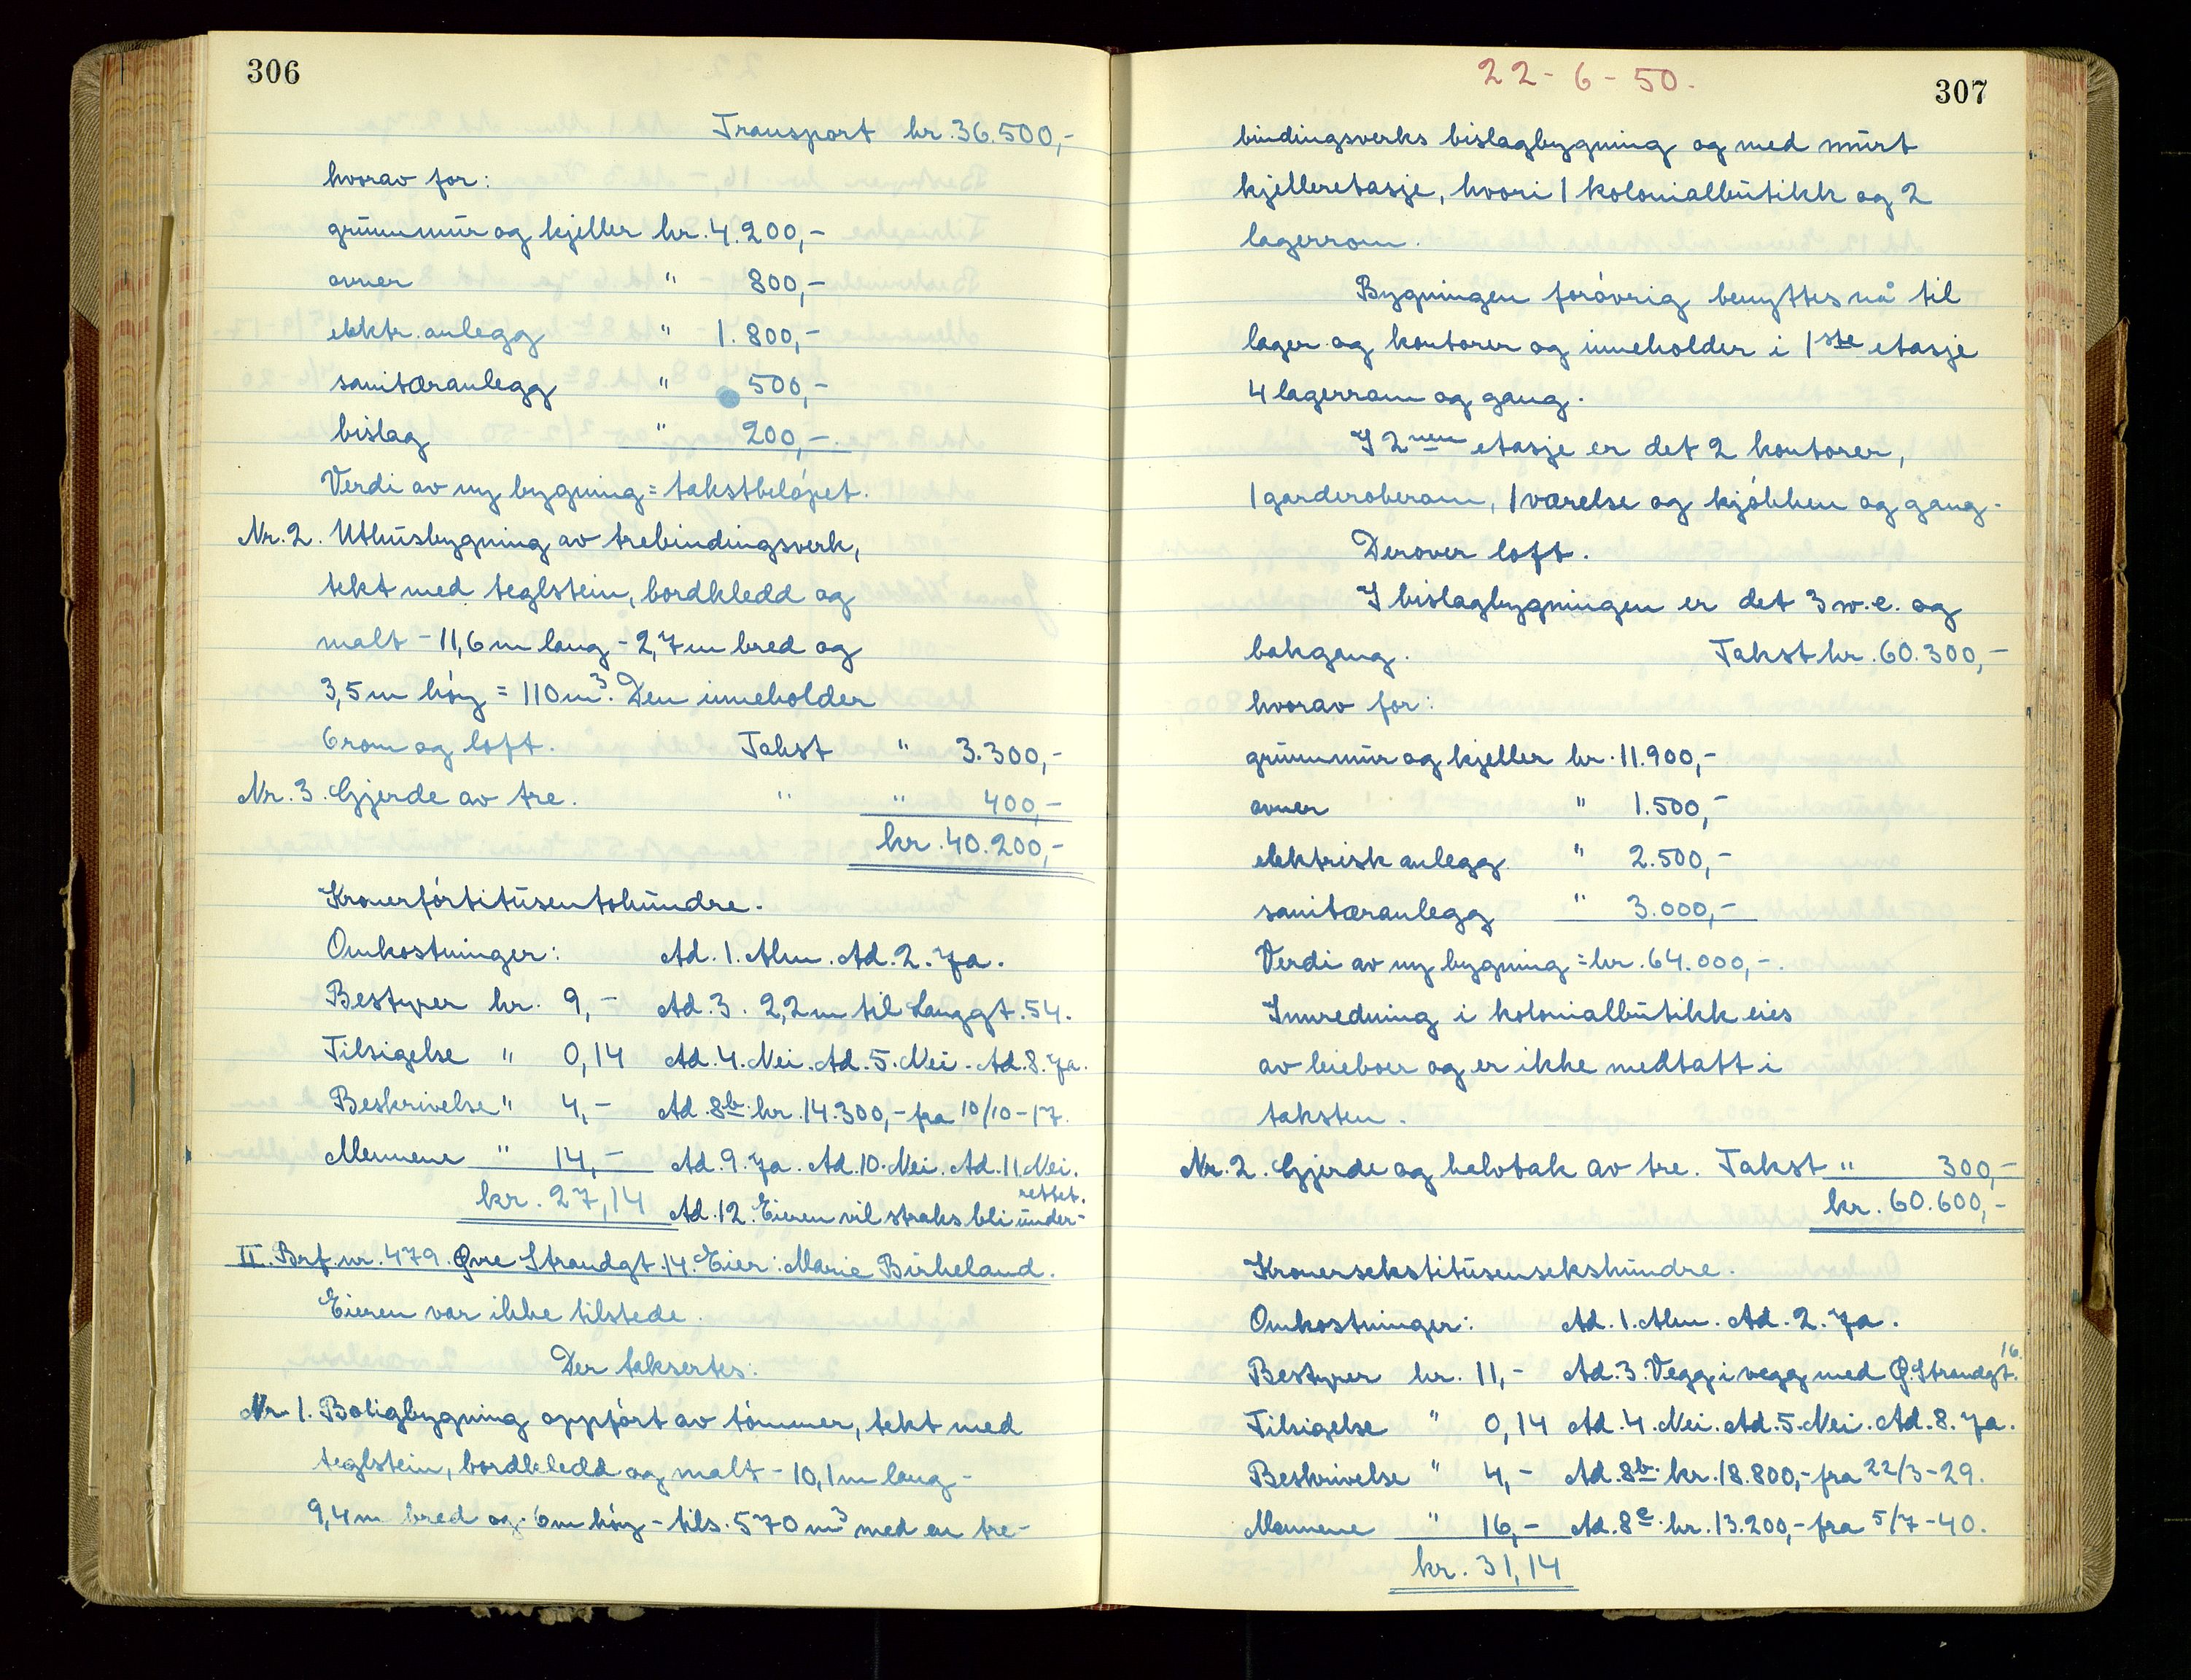 306
Transport kr. 36.500,-
hvorav for:
grunnmur og kjeller kr. 4.200,-
ovner " 800,-
elektr. anlegg " 1.800,-
sanitæranlegg " 500,-
bislag " 200,-
Verdi av ny bygning = takstbeløpet.
Nr. 2. Uthusbygning av trebindingsverk,
tekt med teglstein, bordkledd og
malt - 11,6 m lang - 2,7 m bred og
3,5 m høy = 110 m³. Den inneholder
6 rom og loft. Takst " 3.300,-
Nr. 3. Gjerde av tre. " " 400,-
kr. 40.200,-
Kronerførtitusentohundre.
Omkostninger: Ad. 1. Alm. Ad. 2. Ja.
Bestyrer kr. 9,- Ad. 3. 2,2 m til Langgt. 54.
Tilsigelse " 0,14 Ad. 4. Nei. Ad. 5. Nei. Ad. 8. Ja.
Beskrivelse " 4,- Ad. 8b. kr. 14.300,- fra 10/10-17.
Mennene " 14,- Ad. 9. Ja. Ad. 10. Nei. Ad. 11. Nei.
kr. 27,14 Ad. 12. Eieren vil straks bli under-
rettet.
II. Brf. nr. 479. Øvre Strandgt. 14. Eier: Marie Birkeland.
Eieren var ikke tilstede.
Der taksertes:
Nr. 1. Boligbygning oppført av tømmer, tekt med
teglstein, bordkledd og malt - 10,1 m lang -
9,4 m bred og 6 m høy - tils. 570 m³ med en tre-
22-6-50.
307
bindingsverks bislagbygning og med murt
kjelleretasje, hvori 1 kolonialbutikk og 2
lagerrom.
Bygningen forøvrig benyttes nå til
lager og kontorer og inneholder i 1ste etasje
4 lagerrom og gang.
I 2nen etasje er det 2 kontorer,
1 garderoberom, 1 værelse og kjøkken og gang.
Derover loft.
I bislagbygningen er det 3 w.c. og
bakgang. Takst kr. 60.300,-
hvorav for:
grunnmur og kjeller kr. 11.900,-
ovner " 1.500,-
elektrisk anlegg " 2.500,-
sanitæranlegg " 3.000,-
Verdi av ny bygning = kr. 64.000,-.
Innredning i kolonialbutikk eies
av leieboer og er ikke medtatt i
taksten.
Nr. 2. Gjerde og halvtak av tre. Takst " 300,-
kr. 60.600,-
Kronersekstitusensekshundre.
Omkostninger: Ad. 1. Alm. Ad. 2. Ja.
Bestyrer kr. 11,- Ad. 3. Vegg i vegg med Ø. Strandgt. 16.
Tilsigelse " 0,14 Ad. 4. Nei. Ad. 5. Nei. Ad. 8. Ja.
Beskrivelse " 4,- Ad. 8b. kr. 18.800,- fra 22/3-29.
Mennene " 16,- Ad. 8c. kr. 13.200,- fra 5/7-40.
kr. 31,14